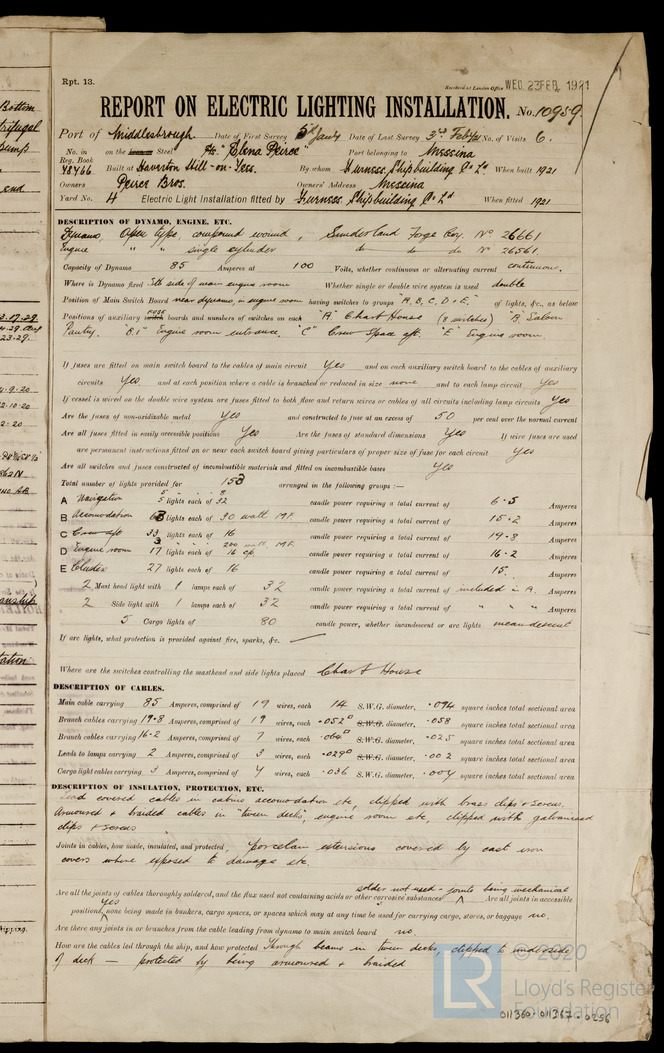 Rpt. 13.
Received at London Office WED. 23 FEB. 1921
REPORT ON ELECTRIC LIGHTING INSTALLATION. No. 10959
Port of Middlesbrough Date of First Survey 5th Jany Date of Last Survey 3rd Feb/21 No. of Visits 6.
No. in Reg. Book 42466 on the Steel "Elena Peirce" Port belonging to Messina
Built at Haverton Hill-on-Tees. By whom Furness Shipbuilding Co. Ld. When built 1921
Owners Peirce Bros. Owners' Address Messina
Yard No. 4 Electric Light Installation fitted by Furness Shipbuilding Co. Ld When fitted 1921
DESCRIPTION OF DYNAMO, ENGINE, ETC.
Dynamo, Open type, compound wound, Sunderland Forge Coy. No 26661
Engine " " single cylinder do do do No 26561.
Capacity of Dynamo 85 Amperes at 100 Volts, whether continuous or alternating current continuous.
Where is Dynamo fixed side of main engine room Whether single or double wire system is used double
Position of Main Switch Board near dynamo, in engine room having switches to groups "A, B, C, D & E." of lights, &c., as below
Positions of auxiliary fuse boards and numbers of switches on each "A" Chart House (8 switches) "B" Saloon
Pantry. "B.1" Engine room entrance. "C" Crew space aft. "E" Engine room
If fuses are fitted on main switch board to the cables of main circuit Yes and on each auxiliary switch board to the cables of auxiliary
circuits Yes. and at each position where a cable is branched or reduced in size none and to each lamp circuit Yes
If vessel is wired on the double wire system are fuses fitted to both flow and return wires or cables of all circuits including lamp circuits Yes
Are the fuses of non-oxidizable metal Yes and constructed to fuse at an excess of 50 per cent over the normal current
Are all fuses fitted in easily accessible positions Yes Are the fuses of standard dimensions Yes If wire fuses are used
are permanent instructions fitted on or near each switch board giving particulars of proper size of fuse for each circuit Yes
Are all switches and fuses constructed of incombustible materials and fitted on incombustible bases Yes
Total number of lights provided for 153 arranged in the following groups :—
A Navigation 5 lights each of 32 candle power requiring a total current of 6.5 Amperes
B Accomodation lights each of 30 watt M.F. candle power requiring a total current of 15.2 Amperes
C Crew aft 33 lights each of 16 candle power requiring a total current of 19.8 Amperes
D Engine room 17 lights each of 16 cp. candle power requiring a total current of 16.2 Amperes
E Cluster 27 lights each of 16 candle power requiring a total current of 15. Amperes
2 Mast head light with 1 lamps each of 32 candle power requiring a total current of included in A. Amperes
2 Side light with 1 lamps each of 32 candle power requiring a total current of " " " Amperes
5 Cargo lights of 80 candle power, whether incandescent or arc lights incandescent
If arc lights, what protection is provided against fire, sparks, &c.
Where are the switches controlling the masthead and side lights placed Chart House
DESCRIPTION OF CABLES.
Main cable carrying 85 Amperes, comprised of 19 wires, each 14 S.W.G. diameter, .094 square inches total sectional area
Branch cables carrying 19.8 Amperes, comprised of 19 wires, each .052" S.W.G. diameter, .058 square inches total sectional area
Branch cables carrying 16.2 Amperes, comprised of 7 wires, each .064" S.W.G. diameter, .025 square inches total sectional area
Leads to lamps carrying 2 Amperes, comprised of 3 wires, each .029" S.W.G. diameter, .002 square inches total sectional area
Cargo light cables carrying 3 Amperes, comprised of 4 wires, each .036 S.W.G. diameter, .004 square inches total sectional area
DESCRIPTION OF INSULATION, PROTECTION, ETC.
Lead covered cables in cabins accomodation etc, clipped with brass clips & screws.
Armoured & braided cables in 'tween decks, engine room etc, clipped with galvanised
clips & screws
Joints in cables, how made, insulated, and protected, porcelain extensions covered by cast iron
covers where exposed to damage etc.
solder not used - joints being mechanical
Are all the joints of cables thoroughly soldered, and the flux used not containing acids or other corrosive substances Are all joints in accessible
positions, none being made in bunkers, cargo spaces, or spaces which may at any time be used for carrying cargo, stores, or baggage no.
yes
Are there any joints in or branches from the cable leading from dynamo to main switch board no.
How are the cables led through the ship, and how protected Through beams in tween decks, clipped to underside
of deck — protected by being armoured & braided
© 2020
LR
Lloyd's Register
Foundation
011360-011367-0256